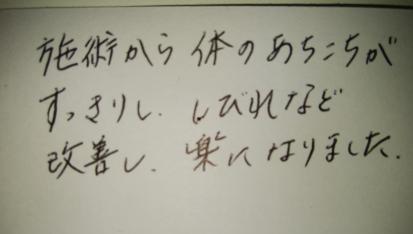 施術から体のあちこちが
すっきりし.しびれなど
改善し.楽になりました.